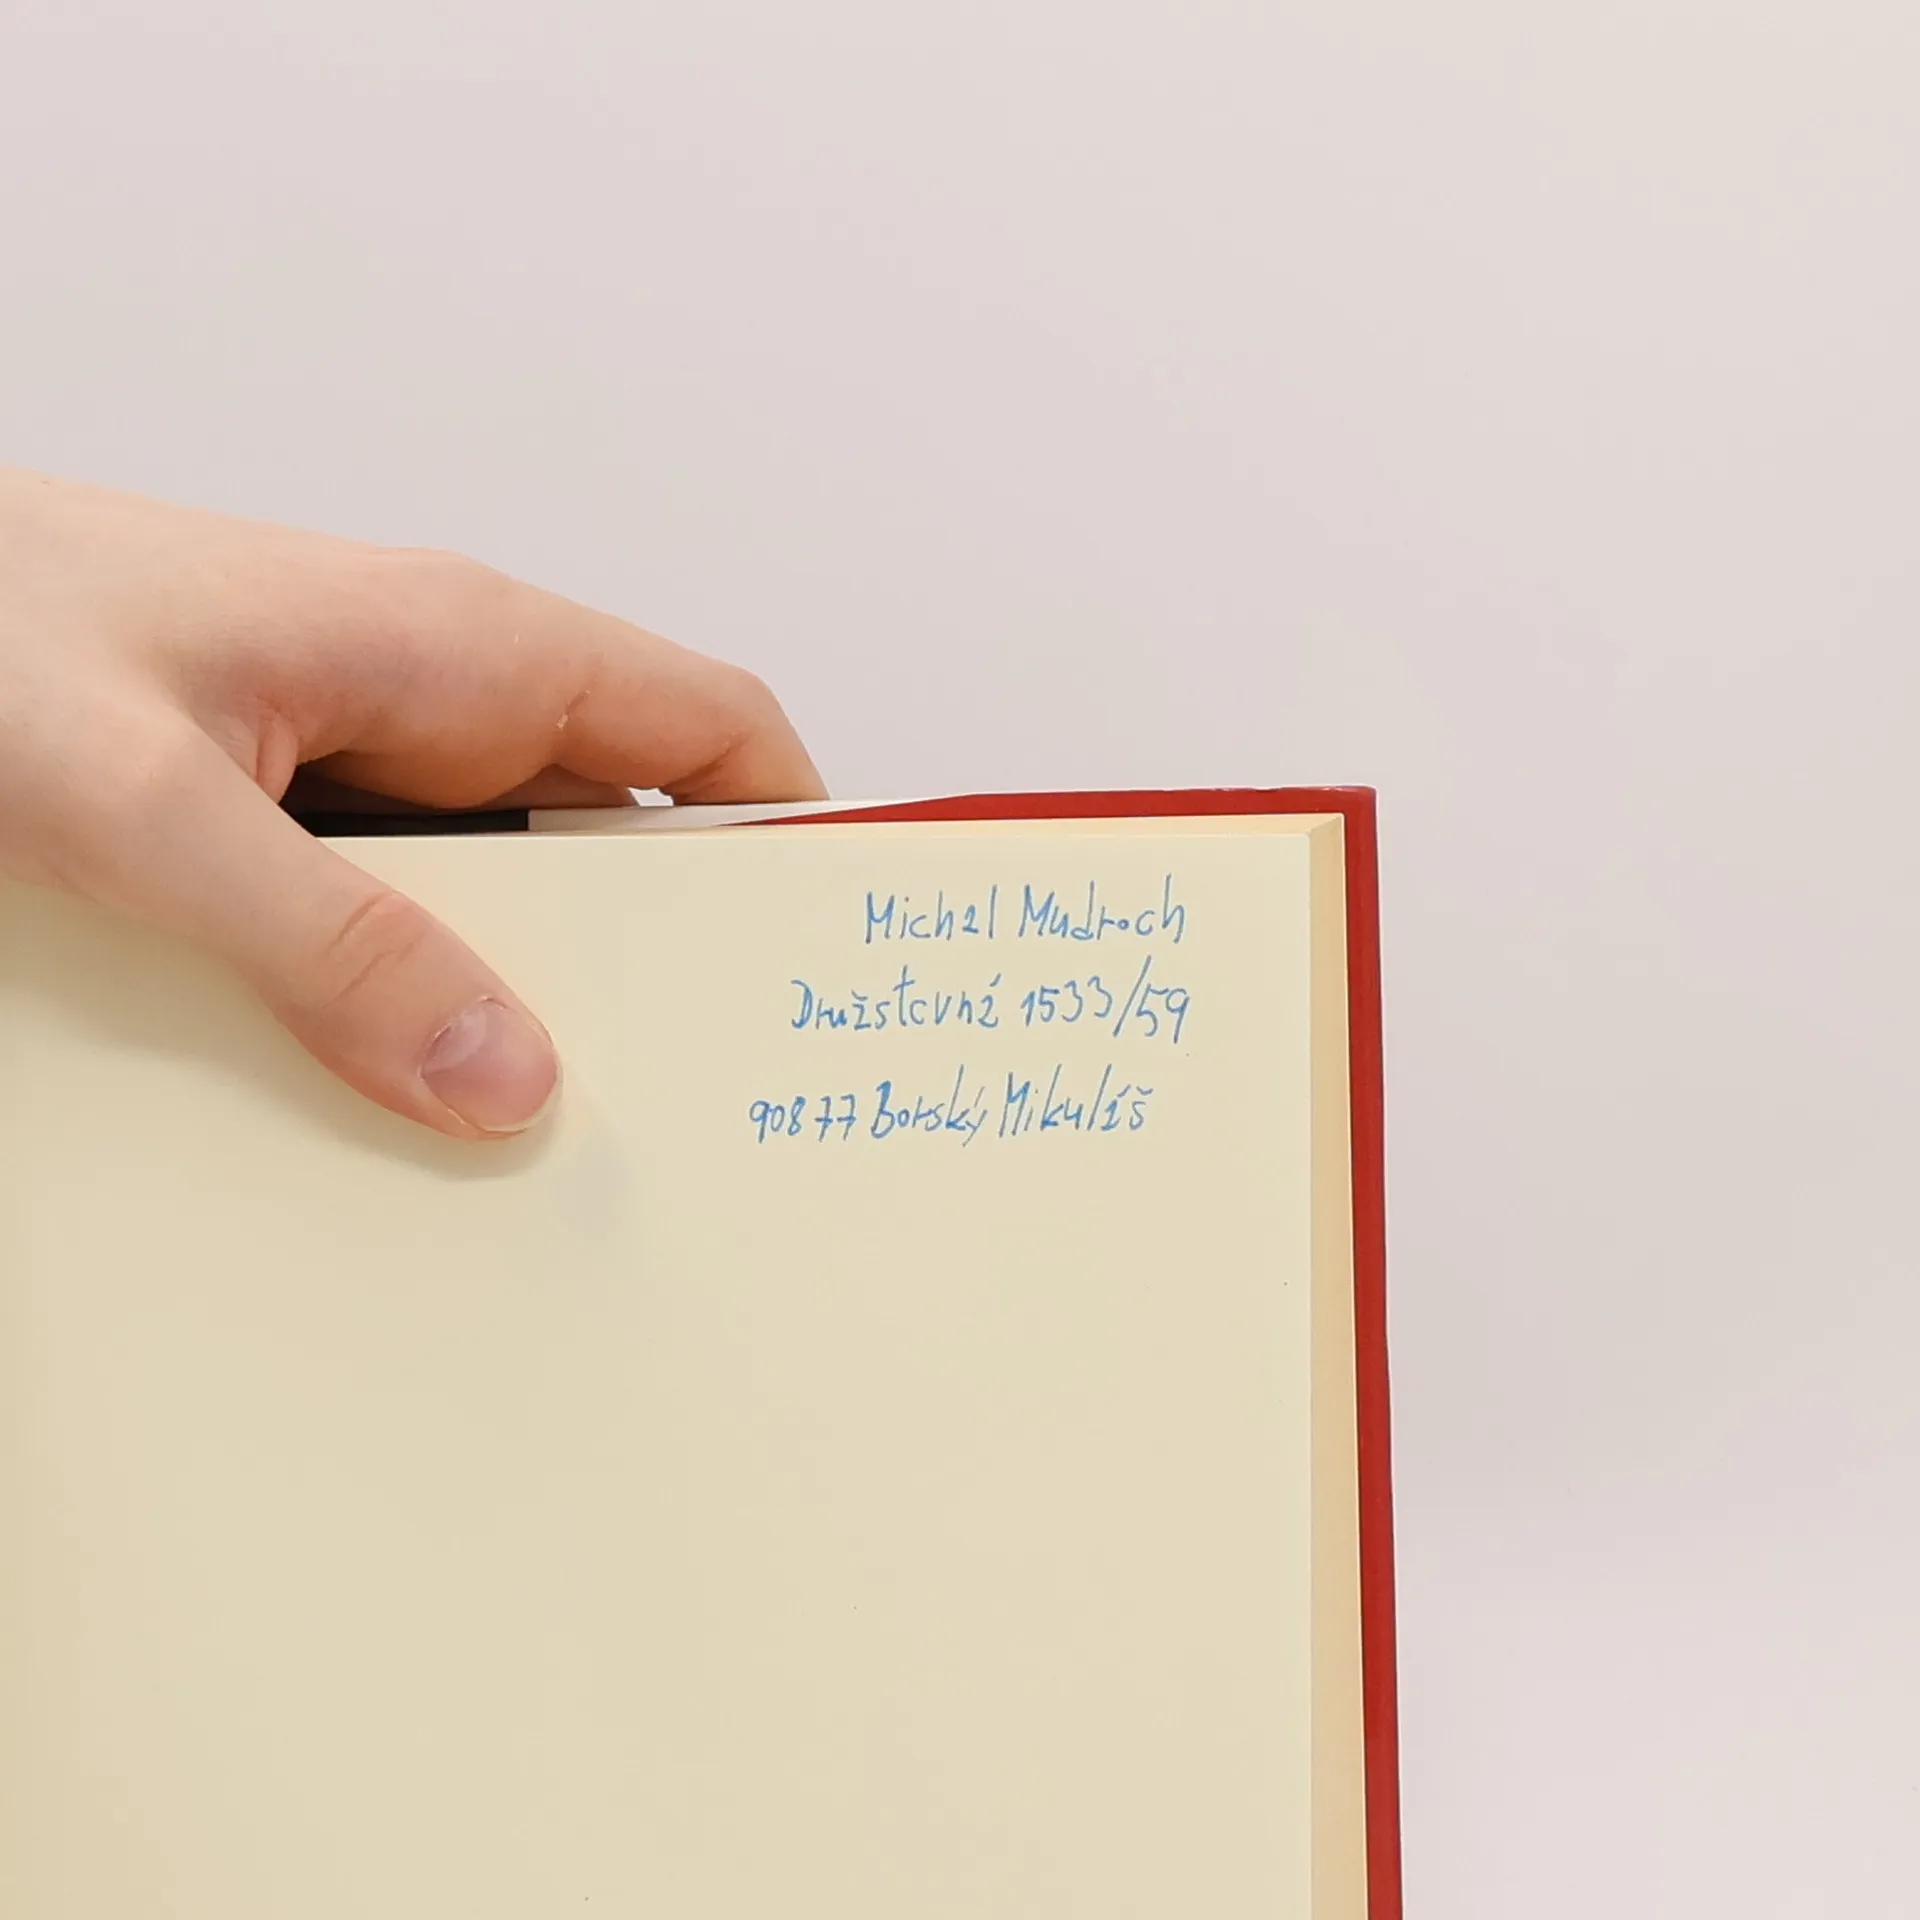 Michal Mudroch
Družstevná 1533/59
90877 Borský Mikuláš